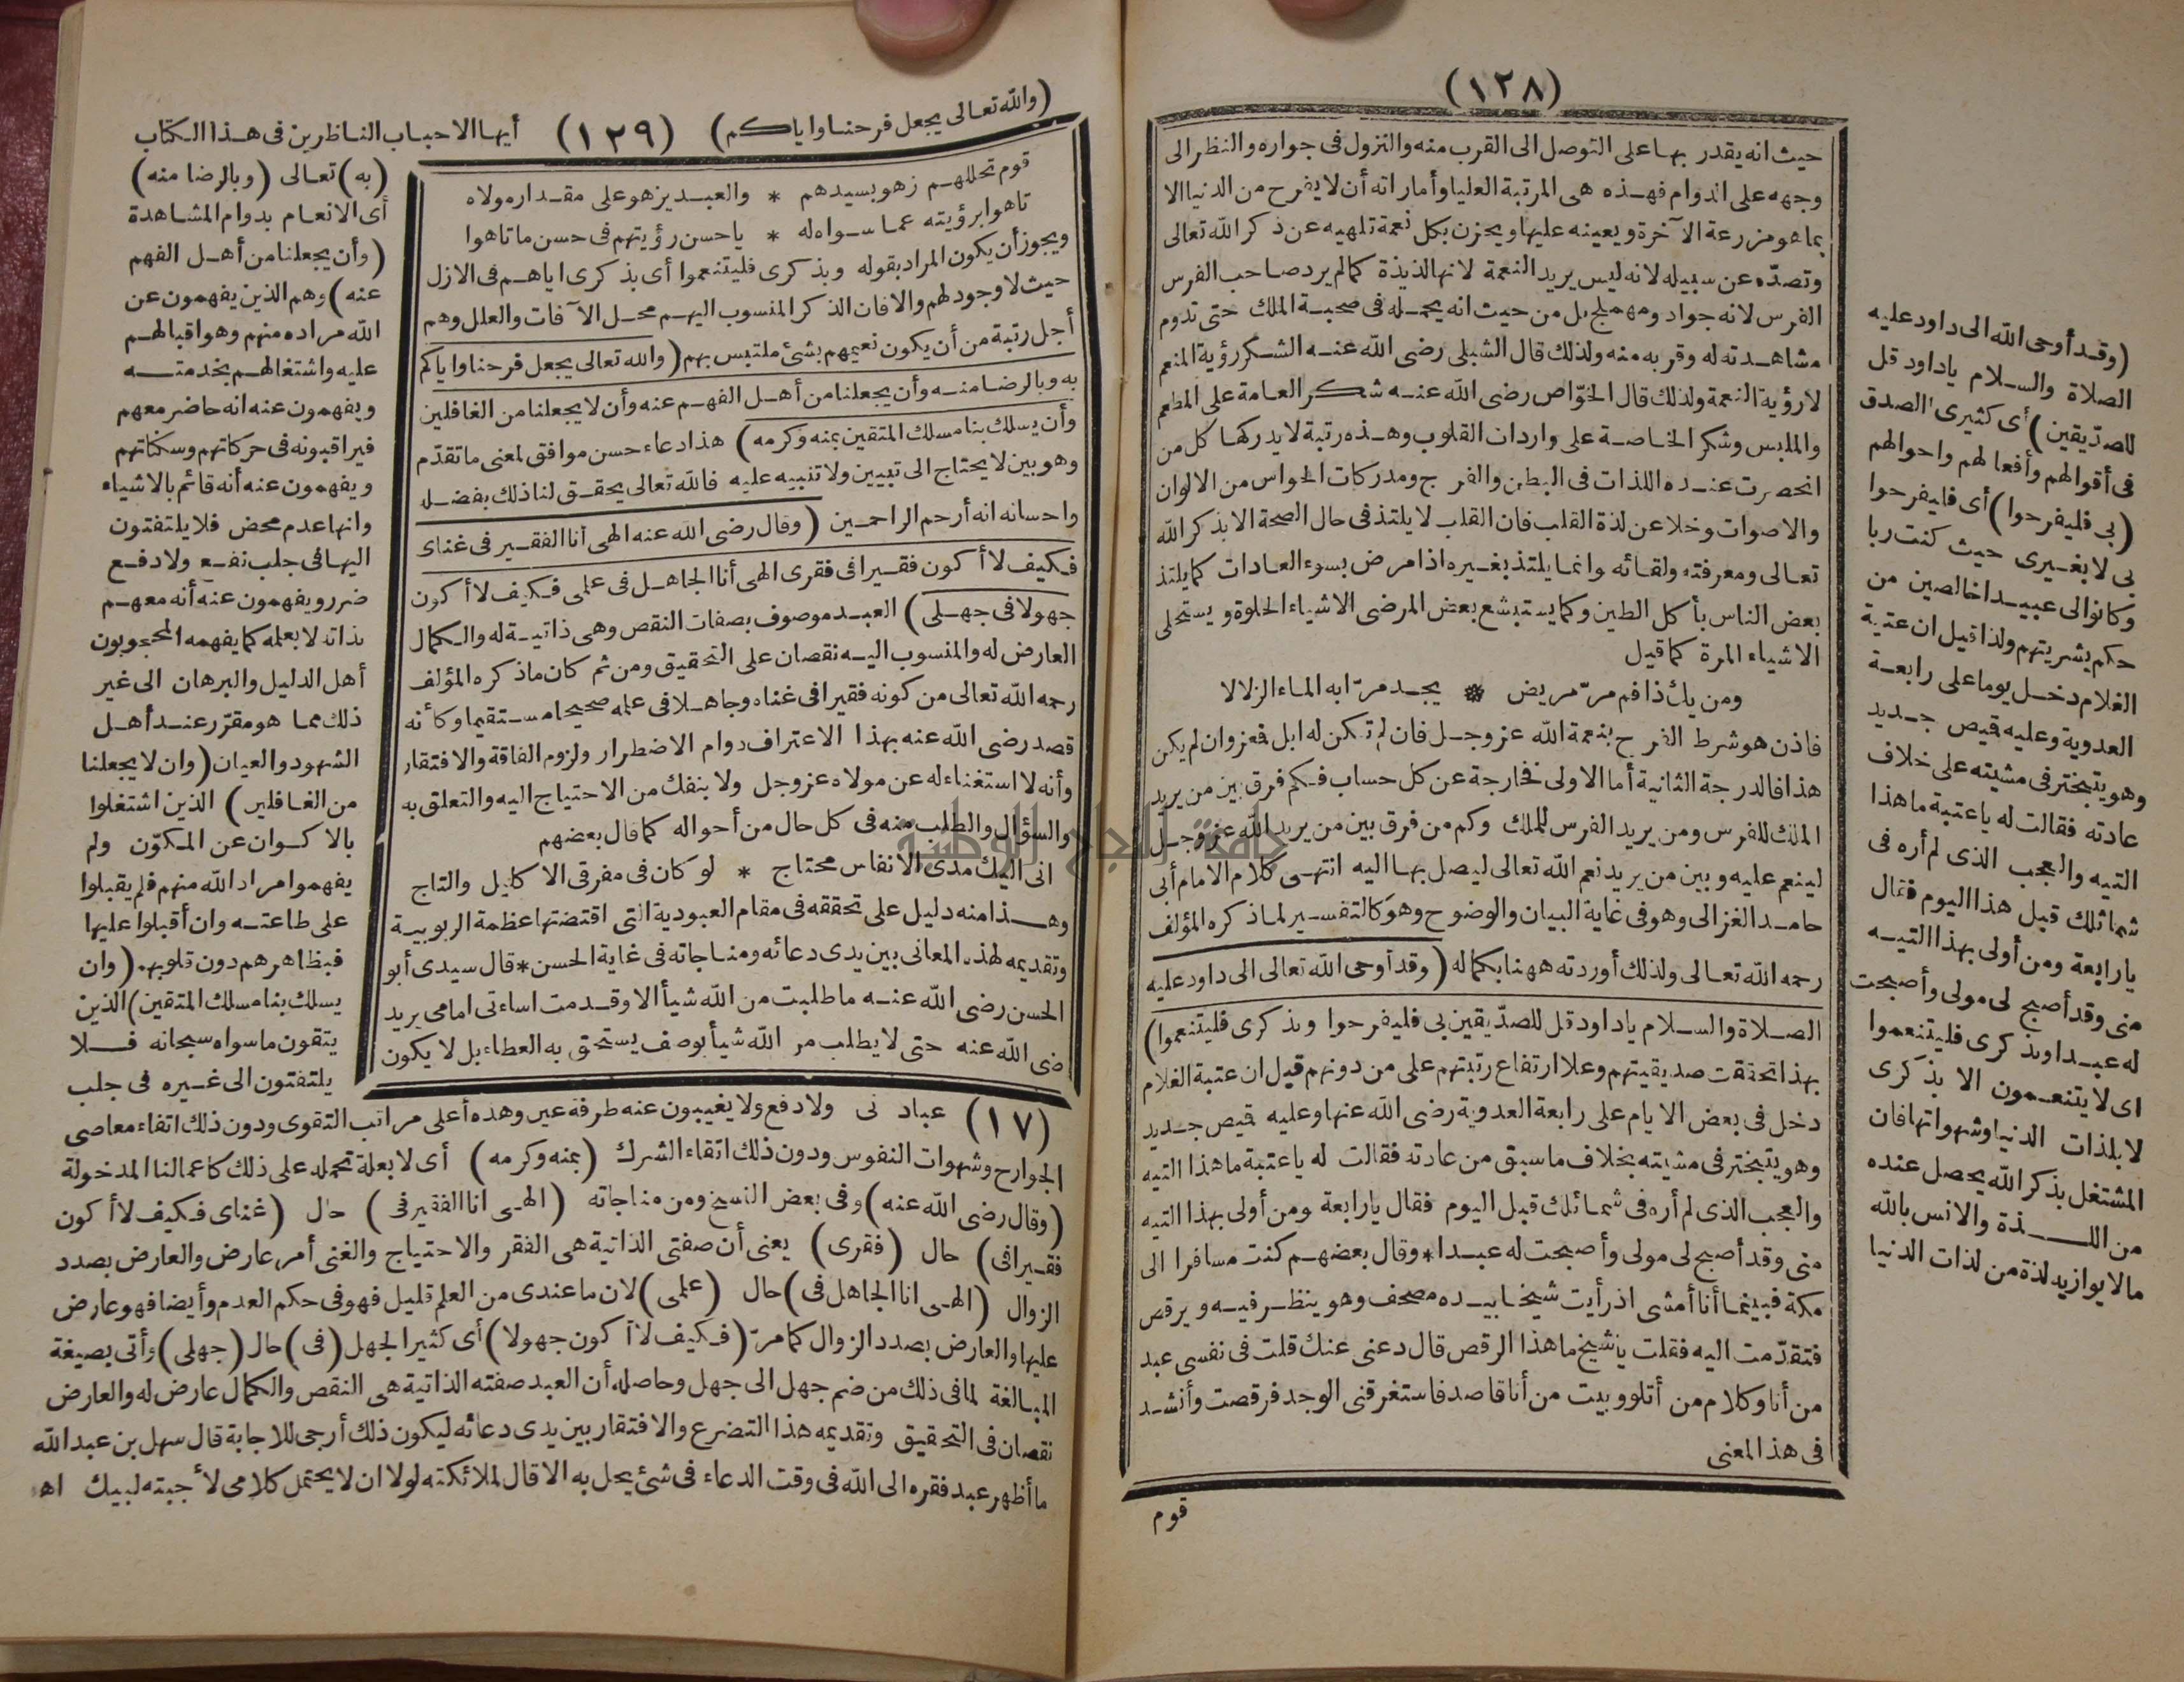 (١٢٨)
حيث انه يقدر بها على التوصل الى القرب منه والنزول فى جواره والنظر الى
وجهه على الدوام فهذه هى المرتبة العليا وأماراته أن لا يفرح من الدنيا الا
بما هو مزرعة الآخرة ويعينه عليها ويحزن بكل نعمة تلهيه عن ذكر الله تعالى
وتصدّه عن سبيله لانه ليس يريد النعمة لانها لذيذة كما لم يرد صاحب الفرس
الفرس لانه جواد ومهملج بل من حيث انه يحمله فى صحبة الملك حتى تدوم
مشاهدته له وقربه منه ولذلك قال الشبلى رضى الله عنه الشكر رؤية المنعم
لا رؤية النعمة ولذلك قال الخوّاص رضى الله عنه شكر العامة على المطعم
والملبس وشكر الخاصة على واردان القلوب وهذه رتبة لا يدركها كل من
انحصرت عنده اللذات فى البطن والفرج ومدركات الحواس من الالوان
والاصوات وخلا عن لذة القلب فان القلب لا يلتذ فى حال الصحة الا بذكر الله
تعالى ومعرفته ولقائه وانما يلتذ بغيره اذا مرض بسوء العادات كما يلتذ
بعض الناس بأكل الطين وكما يستبشع بعض المرضى الاشياء الحلوة ويستحلى
الاشياء المرة كما قيل
ومن يك ذا فم مرّ مريض * يجد مرّا به الماء الزلالا
فاذن هو شرط الفرح بنعمة الله عز وجل فان لم تكن له ابل فعز وان لم يكن
هذا فالدرجة الثانية أما الاولى فخارجة عن كل حساب فكم فرق بين من يريد
الملك للفرس ومن يريد الفرس للملك وكم من فرق بين من يريد الله عز وجل
لينعم عليه وبين من يريد نعم الله تعالى ليصل بها اليه انتهى كلام الامام أبى
حامد الغزالى وهو فى غاية البيان والوضوح وهو كالتفسير لما ذكره المؤلف
رحمه الله تعالى ولذلك أوردته ههنا بكماله (وقد أوحى الله تعالى الى داود عليه
الصلاة والسلام يا داود قل للصدّيقين بى فليفرحوا وبذكرى فليتنعموا)
بهذا تحققت صديقيتهم وعلا ارتفاع رتبتهم على من دونهم قيل ان عتبة الغلام
دخل فى بعض الايام على رابعة العدوية رضى الله عنها وعليه قميص جديد
وهو يتبختر فى مشيته بخلاف ما سبق من عادته فقالت له يا عتبة ما هذا التيه
والعجب الذى لم أره فى شمائلك قبل اليوم فقال يا رابعة ومن أولى بهذا التيه
منى وقد أصبح لى مولى وأصبحت له عبدا * وقال بعضهم كنت مسافرا الى
مكة فبينما أنا أمشى اذ رأيت شيخا بيده مصحف وهو ينظر فيه ويرقص
فتقدّمت اليه فقلت يا شيخ ما هذا الرقص قال دعنى عنك قلت فى نفسى عبد
من أنا وكلام من أتلو وبيت من أنا قاصد فاستغرقنى الوجد فرقصت وأنشد
فى هذا المعنى
قوم
(وقد أوحى الله الى داود عليه
الصلاة والسلام يا داود قل
للصدّيقين) أى كثيرى الصدق
فى أقوالهم وأفعالهم واحوالهم
(بى فليفرحوا) أى فليفرحوا
بى لا بغيرى حيث كنت ربا
وكانوا لى عبيدا خالصين من
حكم بشريتهم ولذا قيل ان عتبة
الغلام دخل يوما على رابعة
العدوية وعليه قميص جديد
وهو يتبختر فى مشيته على خلاف
عادته فقالت له يا عتبة ما هذا
التيه والعجب الذى لم أره فى
شمائلك قبل هذا اليوم فقال
يا رابعة ومن أولى بهذا التيه
منى وقد أصبح لى مولى وأصبحت
له عبدا وبذكرى فليتنعموا
اى لا يتنعمون الا بذكرى
لا بلذات الدنيا وشهواتها فان
المشتغل بذكر الله يحصل عنده
من اللذة والانس بالله
ما لا يوازيه لذة من لذات الدنيا
(والله تعالى يجعل فرحنا واياكم) (١٢٩) أيها الاحباب الناظرين فى هذا الكتاب
قوم تخللهم زهو بسيدهم * والعبد يزهو على مقدار مولاه
تاهوا برؤيته عما سواه له * يا حسن رؤيتهم فى حسن ما تاهوا
ويجوز أن يكون المراد بقوله وبذكرى فليتنعموا أى بذكرى اياهم فى الازل
حيث لا وجود لهم والا فان الذكر المنسوب اليهم محل الآفات والعلل وهم
أجل رتبة من أن يكون نعيمهم بشئ ملتبس بهم (والله تعالى يجعل فرحنا واياكم
به وبالرضا منه وأن يجعلنا من أهل الفهم عنه وأن لا يجعلنا من الغافلين
وأن يسلك بنا مسلك المتقين بمنه وكرمه) هذا دعاء حسن موافق لمعنى ما تقدّم
وهو بين لا يحتاج الى تبيين ولا تنبيه عليه فالله تعالى يحقق لنا ذلك بفضله
واحسانه انه أرحم الراحمين (وقال رضى الله عنه الهى أنا الفقير فى غناى
فكيف لا أكون فقيرا فى فقرى الهى أنا الجاهل فى علمى فكيف لا أكون
جهولا فى جهلى) العبد موصوف بصفات النقص وهى ذاتية له والكمال
العارض له والمنسوب اليه نقصان على التحقيق ومن ثم كان ما ذكره المؤلف
رحمه الله تعالى من كونه فقيرا فى غناه وجاهلا فى علمه صحيحا مستقيما وكأنه
قصد رضى الله عنه بهذا الاعتراف دوام الاضطرار ولزوم الفاقة والافتقار
وأنه لا استغناء له عن مولاه عز وجل ولا ينفك من الاحتياج اليه والتعلق به
والسؤال والطلب منه فى كل حال من أحواله كما قال بعضهم
انى اليك مدى الانفاس محتاج * لو كان فى مفرقى الاكليل والتاج
وهذا منه دليل على تحققه فى مقام العبودية التى اقتضتها عظمة الربوبية
وتقديمه لهذه المعانى بين يدى دعائه ومناجاته فى غاية الحسن * قال سيدى أبو
الحسن رضى الله عنه ما طلبت من الله شيأ الا وقدمت اساءتى امامى يريد
رضى الله عنه حتى لا يطلب من الله شيأ بوصف يستحق به العطاء بل لا يكون
(به) تعالى (وبالرضا منه)
أى الانعام بدوام المشاهدة
(وأن يجعلنا من أهل الفهم
عنه) وهم الذين يفهمون عن
الله مراده منهم وهو اقبالهم
عليه واشتغالهم بخدمته
ويفهمون عنه انه حاضر معهم
فيراقبونه فى حركاتهم وسكناتهم
ويفهمون عنه أنه قائم بالاشياء
وانها عدم محض فلا يلتفتون
اليها فى جلب نفع ولا دفع
ضرر ويفهمون عنه أنه معهم
بذاته لا بعلمه كما يفهمه المحجوبون
أهل الدليل والبرهان الى غير
ذلك مما هو مقرّر عند أهل
الشهود والعيان (وان لا يجعلنا
من الغافلين) الذين اشتغلوا
بالاكوان عن المكوّن ولم
يفهموا مراد الله منهم فلم يقبلوا
على طاعته وان أقبلوا عليها
فبظاهرهم دون قلوبهم (وان
يسلك بنا مسلك المتقين) الذين
يتقون ما سواه سبحانه فلا
يلتفتون الى غيره فى جلب
(١٧) عباد نى ولا دفع ولا يغيبون عنه طرفة عين وهذه أعلى مراتب التقوى ودون ذلك اتقاء معاصى
الجوارح وشهوات النفوس ودون ذلك اتقاء الشرك (بمنه وكرمه) أى لا بعلة تحمله على ذلك كأعمالنا المدخولة
(وقال رضى الله عنه) وفى بعض النسخ ومن مناجاته (الهى انا الفقير فى) حال (غناى فكيف لا أكون
فقيرا فى) حال (فقرى) يعنى أن صفتى الذاتية هى الفقر والاحتياج والغنى أمر عارض والعارض بصدد
الزوال (الهى انا الجاهل فى) حال (علمى) لان ما عندى من العلم قليل فهو فى حكم العدم وأيضا فهو عارض
عليها والعارض بصدد الزوال كما مرّ (فكيف لا أكون جهولا) أى كثير الجهل (فى) حال (جهلى) وأتى بصيغة
المبالغة لما فى ذلك من ضم جهل الى جهل وحاصله أن العبد صفته الذاتية هى النقص والكمال عارض له والعارض
نقصان فى التحقيق وتقديمه هذا التضرع والافتقار بين يدى دعائه ليكون ذلك أرجى للاجابة قال سهل بن عبد الله
ما أظهر عبد فقره الى الله فى وقت الدعاء فى شئ يحل به الا قال لملائكته لولا ان لا يحتمل كلامى لأجبته لبيك اه
جامعة النجاح الوطنية